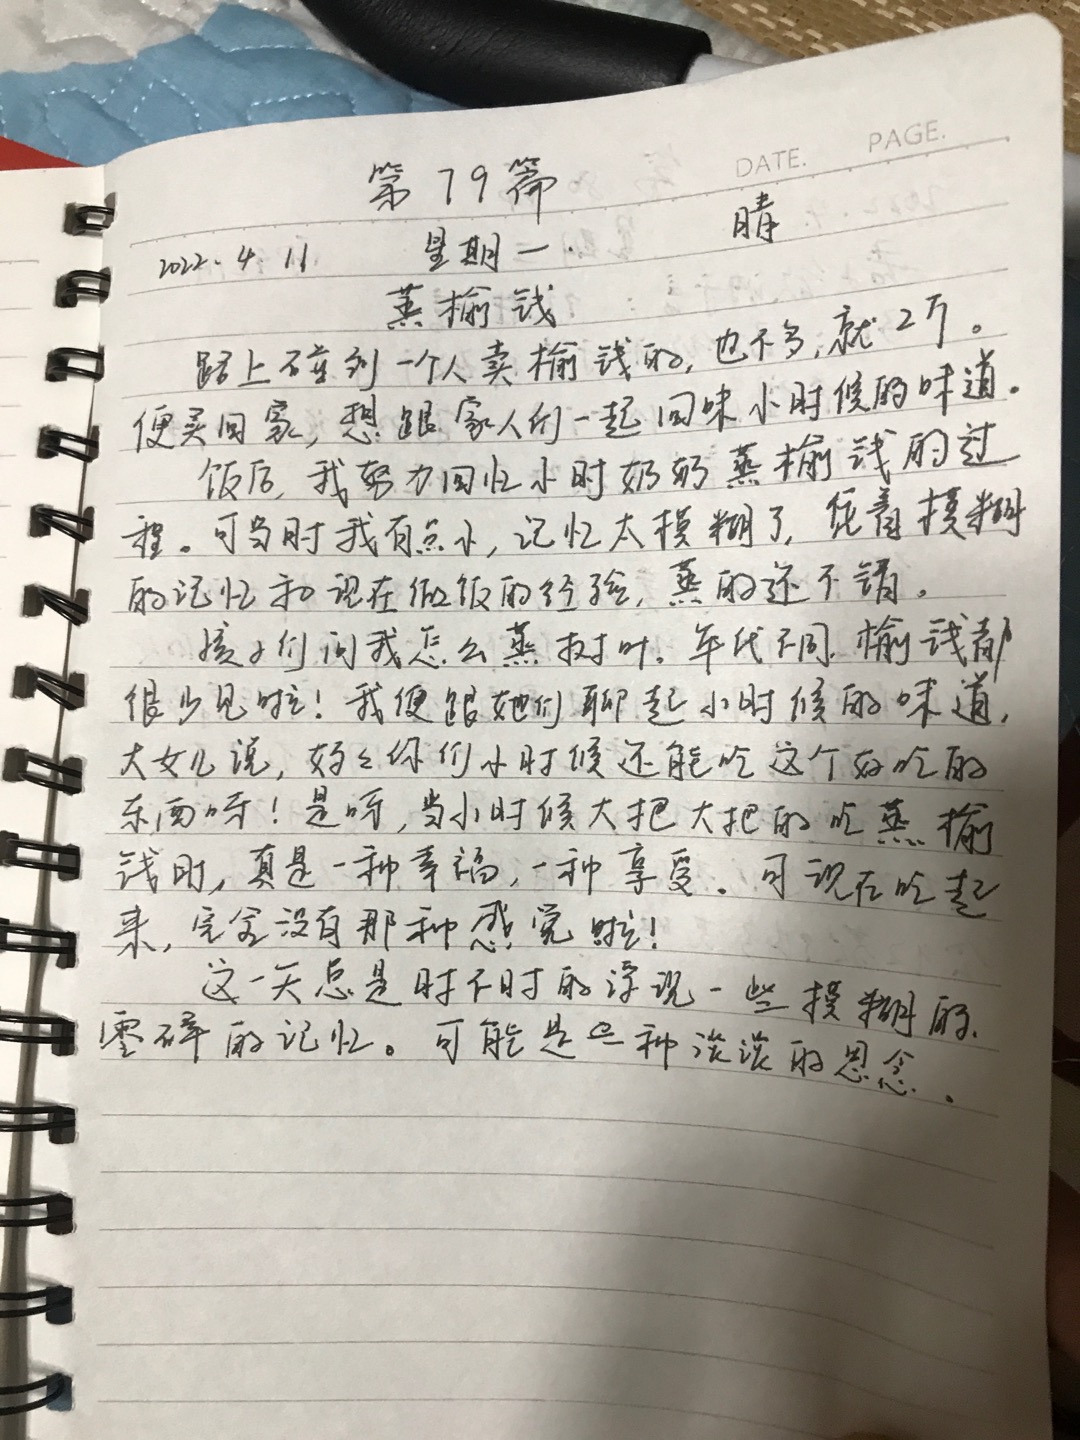 DATE. PAGE.
第79篇
2022.4 11 星期一. 晴
蒸榆钱
路上碰到一个人卖榆钱的,也不多,就2斤。
便买回家,想跟家人们一起回味小时候的味道。
饭后,我努力回忆小时奶奶蒸榆钱的过
程。可当时我有点小,记忆太模糊了,凭着模糊
的记忆和现在做饭的经验,蒸的还不错。
孩子们问我怎么蒸树叶。年代不同.榆钱都
很少见啦!我便跟她们聊起小时候的味道,
大女儿说,妈妈你们小时候还能吃这个好吃的
东西呀!是呀,当小时候大把大把的吃蒸榆
钱时,真是一种幸福,一种享受。可现在吃起
来,完全没有那种感觉啦!
这一天总是时不时的浮现一些模糊的.
零碎的记忆。可能是一种淡淡的思念。